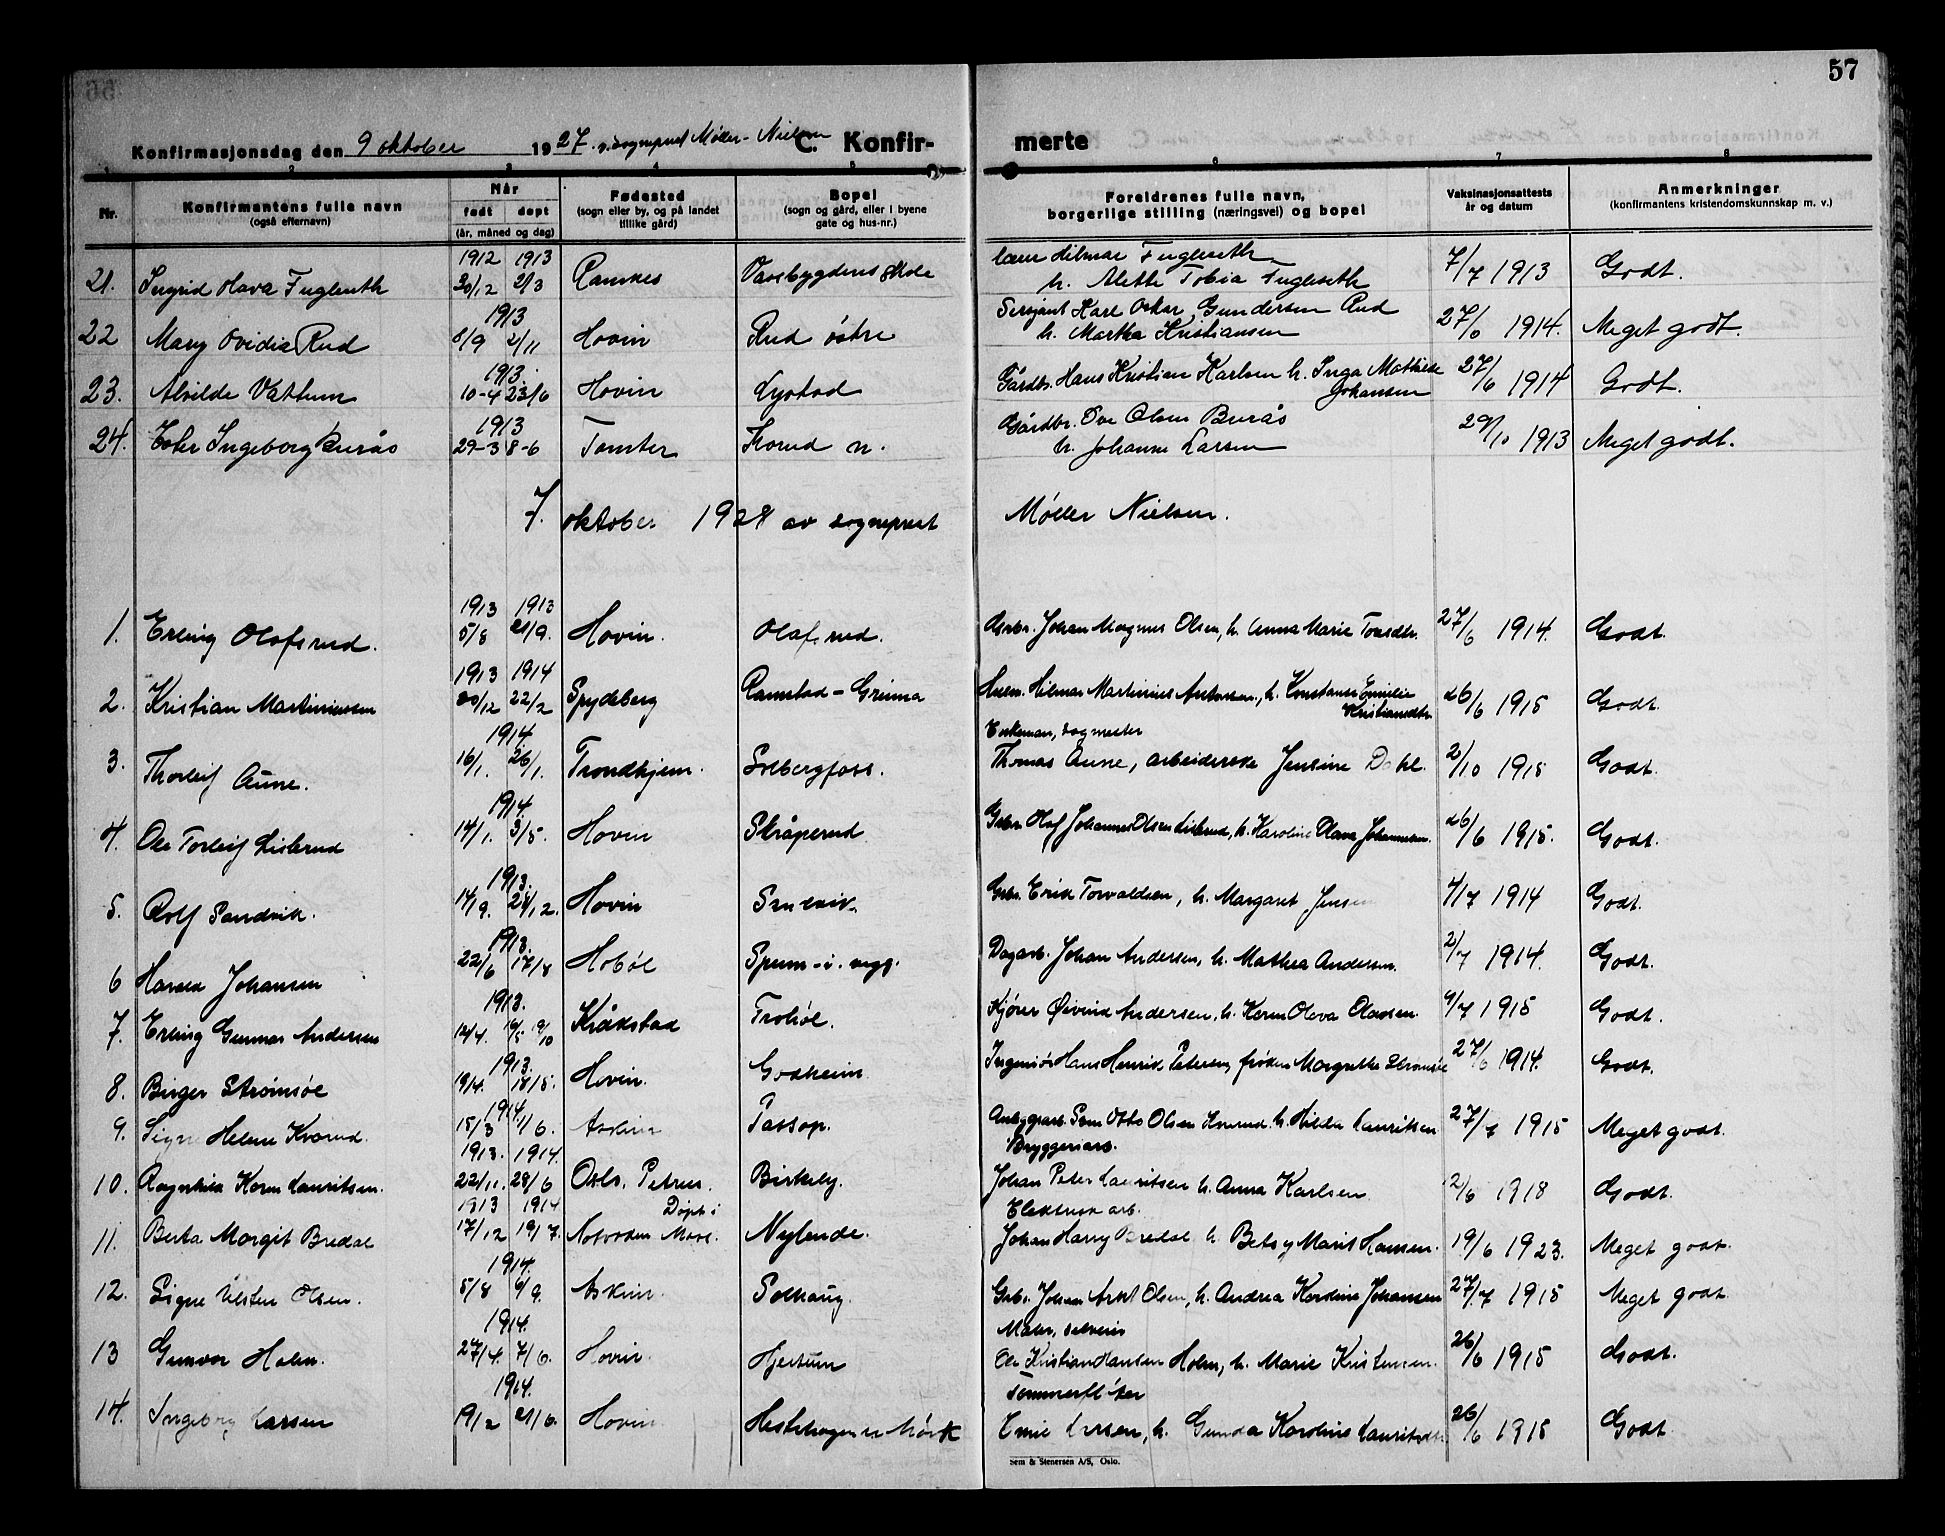 57
Konfirmasjonsdag den 9 oktober 1927 v. sogneprest Møller-Nielsen C. Konfir-merte
1 2 3 4 5 6 7 8
Nr. Konfirmantens fulle navn (også efternavn) Når født døpt (år, måned og dag) Fødested (sogn eller by, og på landet tillike gård) Bopel (sogn og gård, eller i byene gate og hus-nr.) Foreldrenes fulle navn, borgerlige stilling (næringsvei) og bopel Vaksinasjonsattests år og datum Anmerkninger (konfirmantens kristendomskunnskap m. v.)
1912 1913 Hilmar Fugleseth
21. Ingrid Hava Fugleseth 30/12 2/3 Ramnes skole h. Alette Tobia Fugleseth 7/7 1913 Godt.
1913 Sersjant Karl Oskar Gundersen Rud
22 Mary Ovidia Rud 8/9 2/11 Hovin Rud østre h. Martha Kristiansen 27/6 1914. Meget godt.
1913. Gårdbr. Hans Kristian Karlsen h. Inga Mathilde
23. Alvilde Vattum 10-4 23/6 Hovin Lystad Johansen 27/6 1914 Godt.
1913 Gårdbr. Ove Olsen Burås
24. Ester Ingeborg Burås 29-3 8-6 Tomter n. h. Johanne Larsen 29/10 1913 Meget godt.
7. oktober 1928 av sogneprest Møller Nielsen.
1913 1913
1. Erling Olafsrud. 5/8 21/9. Hovin. Olafsrud. Johan Magnus Olsen, h. Anna Marie 27/6 1914. Godt.
1913 1914
2. Kristian Martiniussen 20/12 22/2 Spydeberg Ramstad-Grima Hilmar Martinius h. Konstanse Emilie Kristiansdtr. 26/6 1915 Godt.
1914. Enkeman, sagmester
3. Thorleif Aune. 16/1. 26/1. Trondhjem. Solbergfoss. Thomas Aune, arbeiderske Jensine Dahl. 2/10 1915 Godt.
1914.
4. Ole Torleif Lislerud 14/1. 3/5. Hovin Skråperud Olaf Johannes Olsen Lislerud, h. Karoline Olava Johannesen. 26/6 1915. Godt.
1913.
5. Rolf Sandvik. 14/9. 28/12. Hovin Gbr. Erik Torvaldsen, h. Margaret Jensen 4/7 1914 Godt.
1913.
6 Harald Johansen 22/6 17/8 Hobøl Dagarb. Johan Andersen, h. Mathea Andersen. 2/7 1914. Godt.
1913.
7. Erling Gunnar Andersen 14/4. 19/10 Kråkstad Frohøl. Kjører Øivind Andersen, h. Karen Olava Olausen. 9/7 1915 Godt.
1913.
8. Birger Strømsøe 19/4. 18/5. Hovin. Godheim Ingeniør Hans Henrik Petersen, frøken Margrethe Strømsøe 27/6 1914. Godt.
1914
9. Signe Helene Kvarud. 15/3 1/6. Askim Passop. Otto Olsen h. Hilda Lauritsen 27/7 1915 Meget godt.
1913. 1914. Bryggeriarb.
10. Ragnhild Karen Lauritsen. 22/11. 28/6 Oslo. Petrus. Birkely. Johan Peter Lauritsen h. Anna Karlsen 2/6 1918 Godt.
1913 1914 Døpt i Elektrisk arb.
11. Berta Margit Bredal 17/12 19/7. Notodden Nylende. Johan Harry Bredal h. Betsy Marit Hansen. 19/6 1923. Meget godt.
1914.
12. Signe Olsen. 5/8 6/9. Askim. Solhaug. Gbr. Johan Olsen, h. Andrea Karoline Johansen 27/7 1915 Meget godt.
1914. Maler, selveier
13 Gunvor Holm. 27/4. 7/6. Hovin. Hjertum Ole Kristian Hansen Holm, h. Marie Kristensen. 26/6 1915 Godt.
1914. Tømmerfløter
14. Ingeborg Larsen 19/2 21/6. Hovin. Hestehagen u. Mørk Emil Larsen, h. Gunda Karoline Lauritsdtr. 26/6 1915 Godt.
Sem & Stenersen A/S, Oslo.